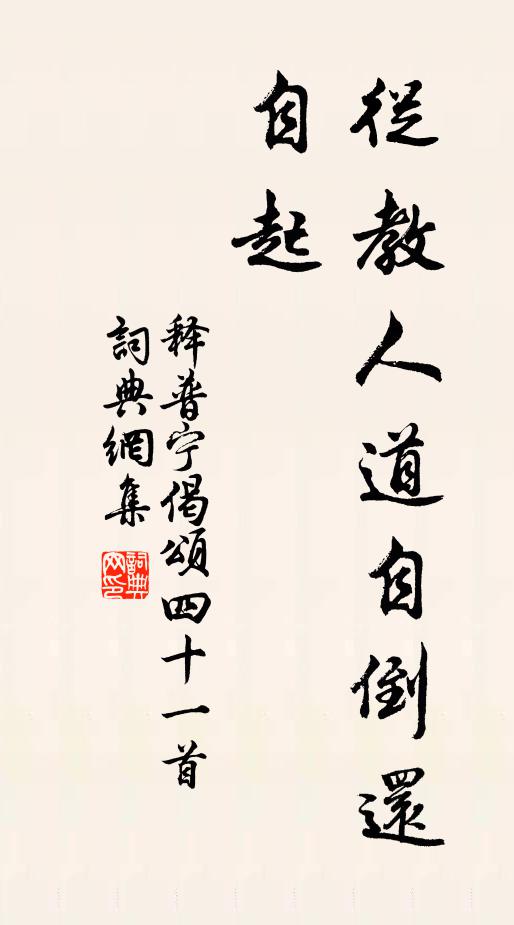 從教人道自倒還
自起
释普宁偈頌四十一首
詞典網集
詞典网印